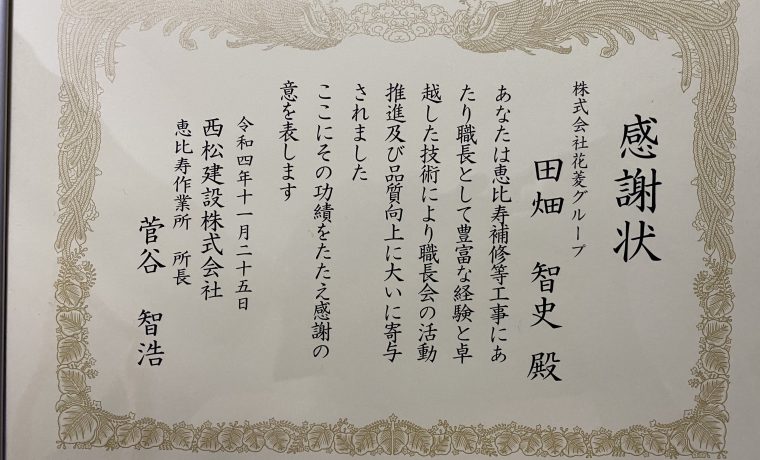 感謝状
株式会社花菱グループ
田畑 智史 殿
あなたは恵比寿補修等工事にあ
たり職長として豊富な経験と卓
越した技術により職長会の活動
推進及び品質向上に大いに寄与
されました
ここにその功績をたたえ感謝の
意を表します
令和四年十一月二十五日
西松建設株式会社
恵比寿作業所 所長
菅谷 智浩